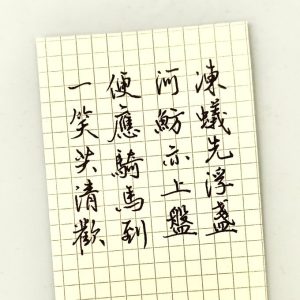 凍蟻先浮盞
河魴亦上盤
便應騎馬到
一笑共清歡